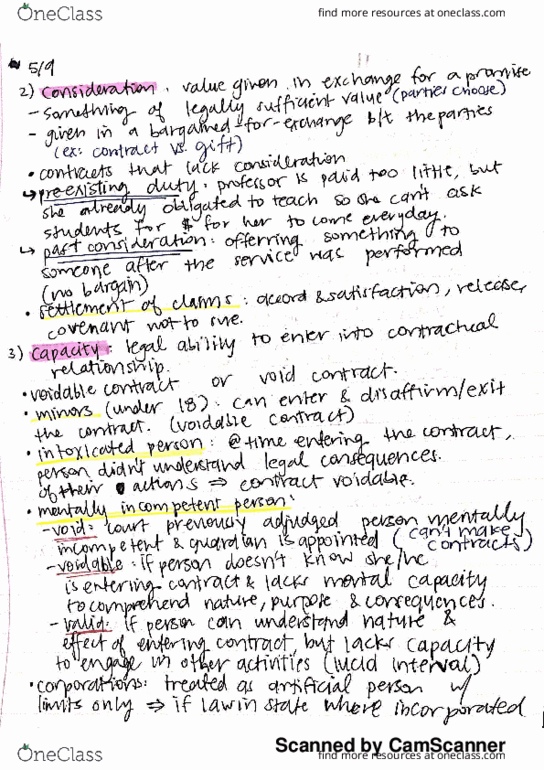 OneClass
find more resources at oneclass.com
5/9
2) consideration. value given in exchange for a promise
- something of legally sufficient value (parties choose)
- given in a bargained-for-exchange b/t the parties
(ex: contract vs. gift)
• contracts that lack consideration
↳ pre-existing duty: professor is paid too little, but
she already obligated to teach so she can't ask
students for $ for her to come everyday.
↳ past consideration: offering something to
someone after the service was performed
(no bargain)
• settlement of claims: accord & satisfaction, release,
covenant not to sue.
3) capacity: legal ability to enter into contractual
relationship.
• voidable contract or void contract.
• minors (under 18): can enter & disaffirm/exit
the contract. (voidable contract)
• intoxicated person: @ time entering the contract,
person didn't understand legal consequences.
of their actions ⇒ contract voidable.
• mentally incompetent person:
- void: court previously adjudged person mentally
incompetent & guardian is appointed (can't make
contracts)
- voidable: if person doesn't know she/he
is entering contract & lacks mental capacity
to comprehend nature, purpose & consequences.
- valid: if person can understand nature &
effect of entering contract, but lacks capacity
to engage in other activities (lucid interval)
• corporations: treated as artificial person w/
limits only ⇒ if law in state where incorporated
Scanned by CamScanner
OneClass
find more resources at oneclass.com